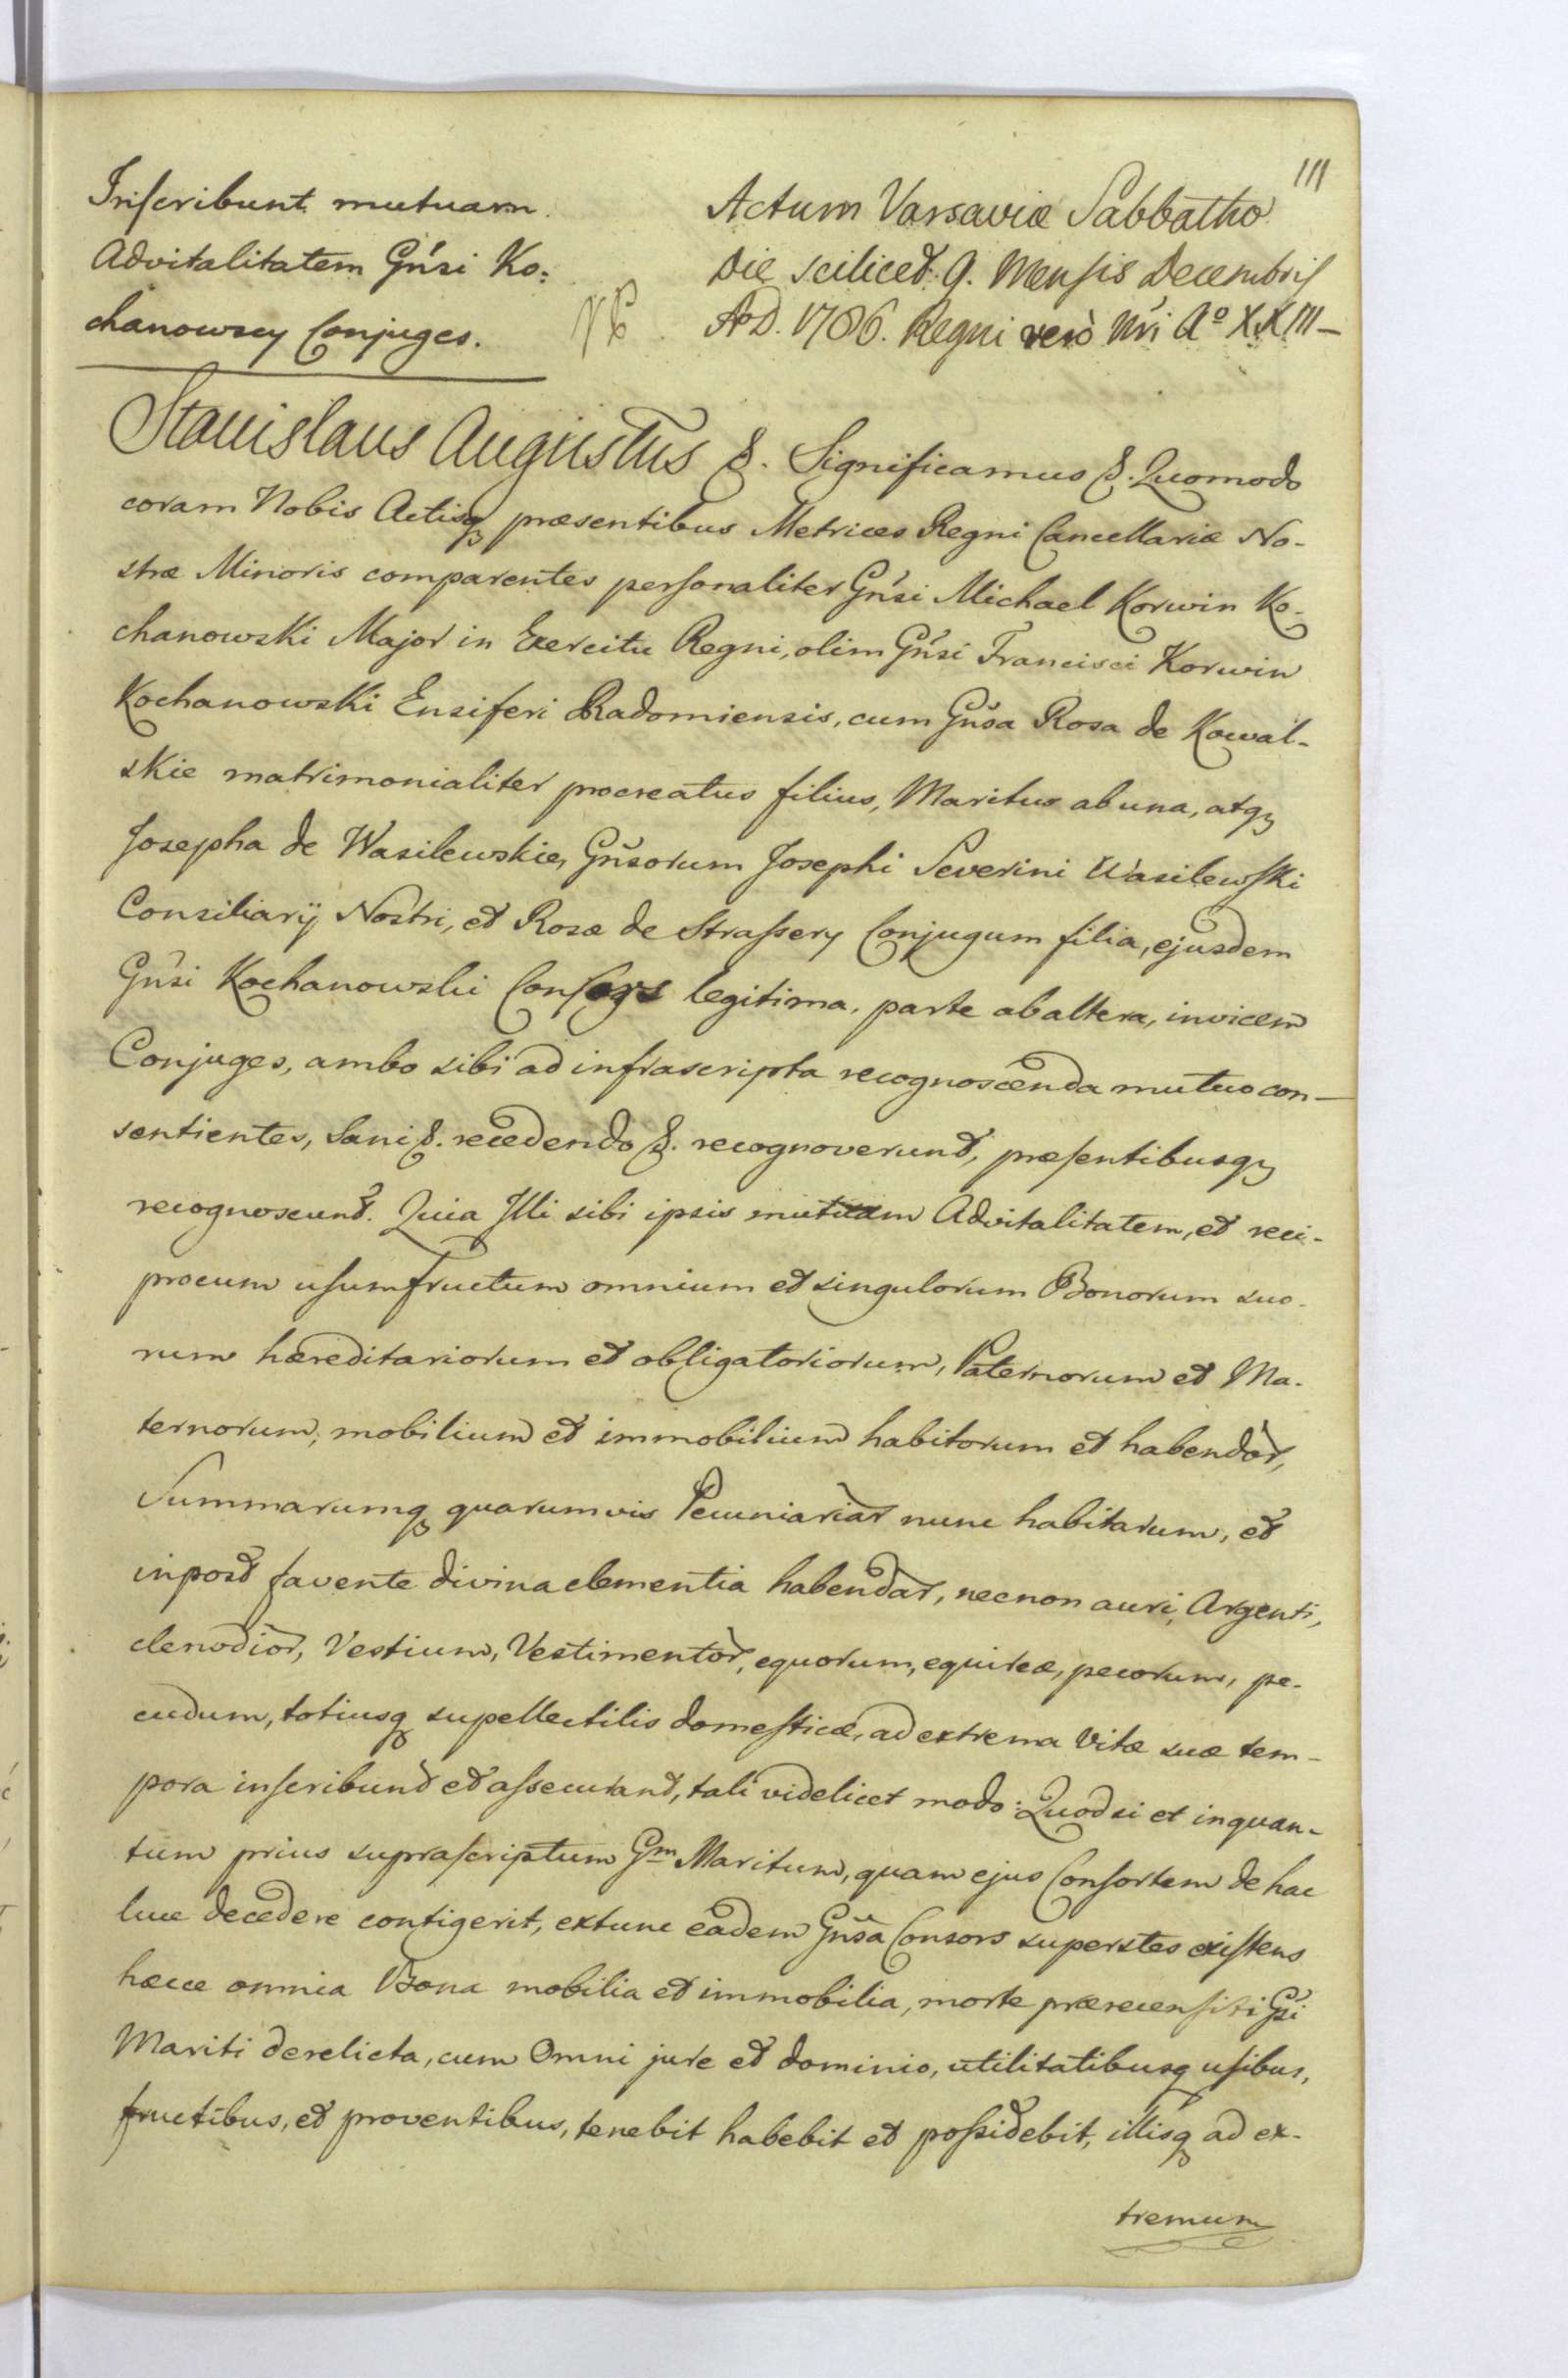 111
Inscribunt mutuam
Advitalitatem Gńsi Ko:
chanowscy Conjuges.
Actum Varsaviæ Sabbatho
Die scilicet 9. Mensis Decembris
AoD. 1786. Regni verò Nri Aº XXIII—
Stanislaus Augustus &. Significamus &. Quomodo
coram Nobis Actisq præsentibus Metrices Regni Cancellariæ No-
stræ Minoris comparentes personaliter Gńsi Michael Korwin Ko-
chanowski Major in Exercitu Regni, olim Gńsi Francisci Korwin
Kochanowski Ensiferi Radomiensis, cum Gńsa Rosa de Kowal-
skie matrimonialiter procreatus filius, Maritus ab una, atq
Josepha de Wasilewskie, Gńsorum Josephi Severini Wasilewski
Consiliarij Nostri, et Rosæ de Strassery Conjugum filia, ejusdem
Gńsi Kochanowski Consors legitima, parte ab altera, invicem
Conjuges, ambo sibi ad infrascripta recognoscenda mutuo con-
sentientes, Sani &. recedendo &. recognoverunt, præsentibusq
recognoscunt. Quia Illi sibi ipsis mutuam Advitalitatem, et reci-
procum usumfructum omnium et singulorum Bonorum suo-
rum hæreditariorum et obligatoriorum, Paternorum et Ma-
ternorum, mobilium et immobilium habitorum et habendor,
Summarumq quarumvis Pecuniariar nunc habitarum, et
inpost favente divina clementia habendar, necnon auri, Argenti,
clenodior, Vestium, Vestimentor, equorum, equireæ, pecorum, pe-
cudum, totiusq supellectilis domesticæ, ad extrema Vitæ suæ tem-
pora inscribunt et assecurant, tali videlicet modo: Quod si et inquan-
tum prius suprascriptum Gm Maritum, quam ejus Consortem de hac
luce decedere contigerit, extunc eadem Gńsa Consors superstes existens
hæcce omnia Bona mobilia et immobilia, morte prærecensiti Gsi
Mariti derelicta, cum Omni jure et dominio, utilitatibusq usibus,
fructibus, et proventibus, tenebit habebit et possidebit, illisq ad ex-
tremum